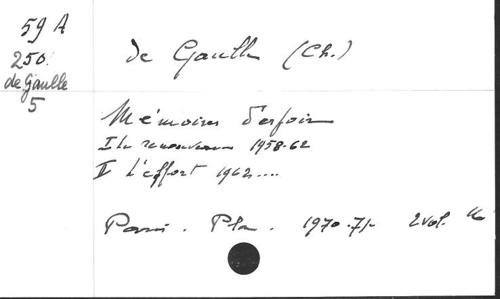 59 A
250
de Gaulle
5
de Gaulle (Ch.)
Mémoires d'espoir
I Le renouveau 1958-62
II L'effort 1962....
Paris. Plon. 1970-71 2 vol.